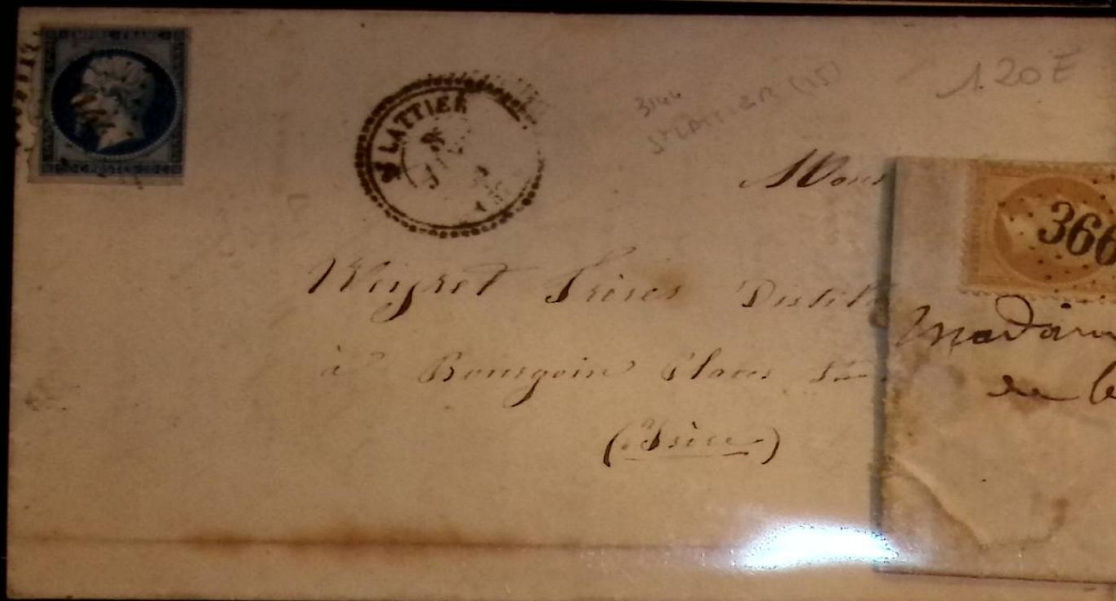 EMPIRE FRANC
ST LATTIER
8
3144
ST LATTIER (15)
120 F
Mons
Veyret Frères Distil
à Bourgoin Place
(Isère)
366
Madam
de